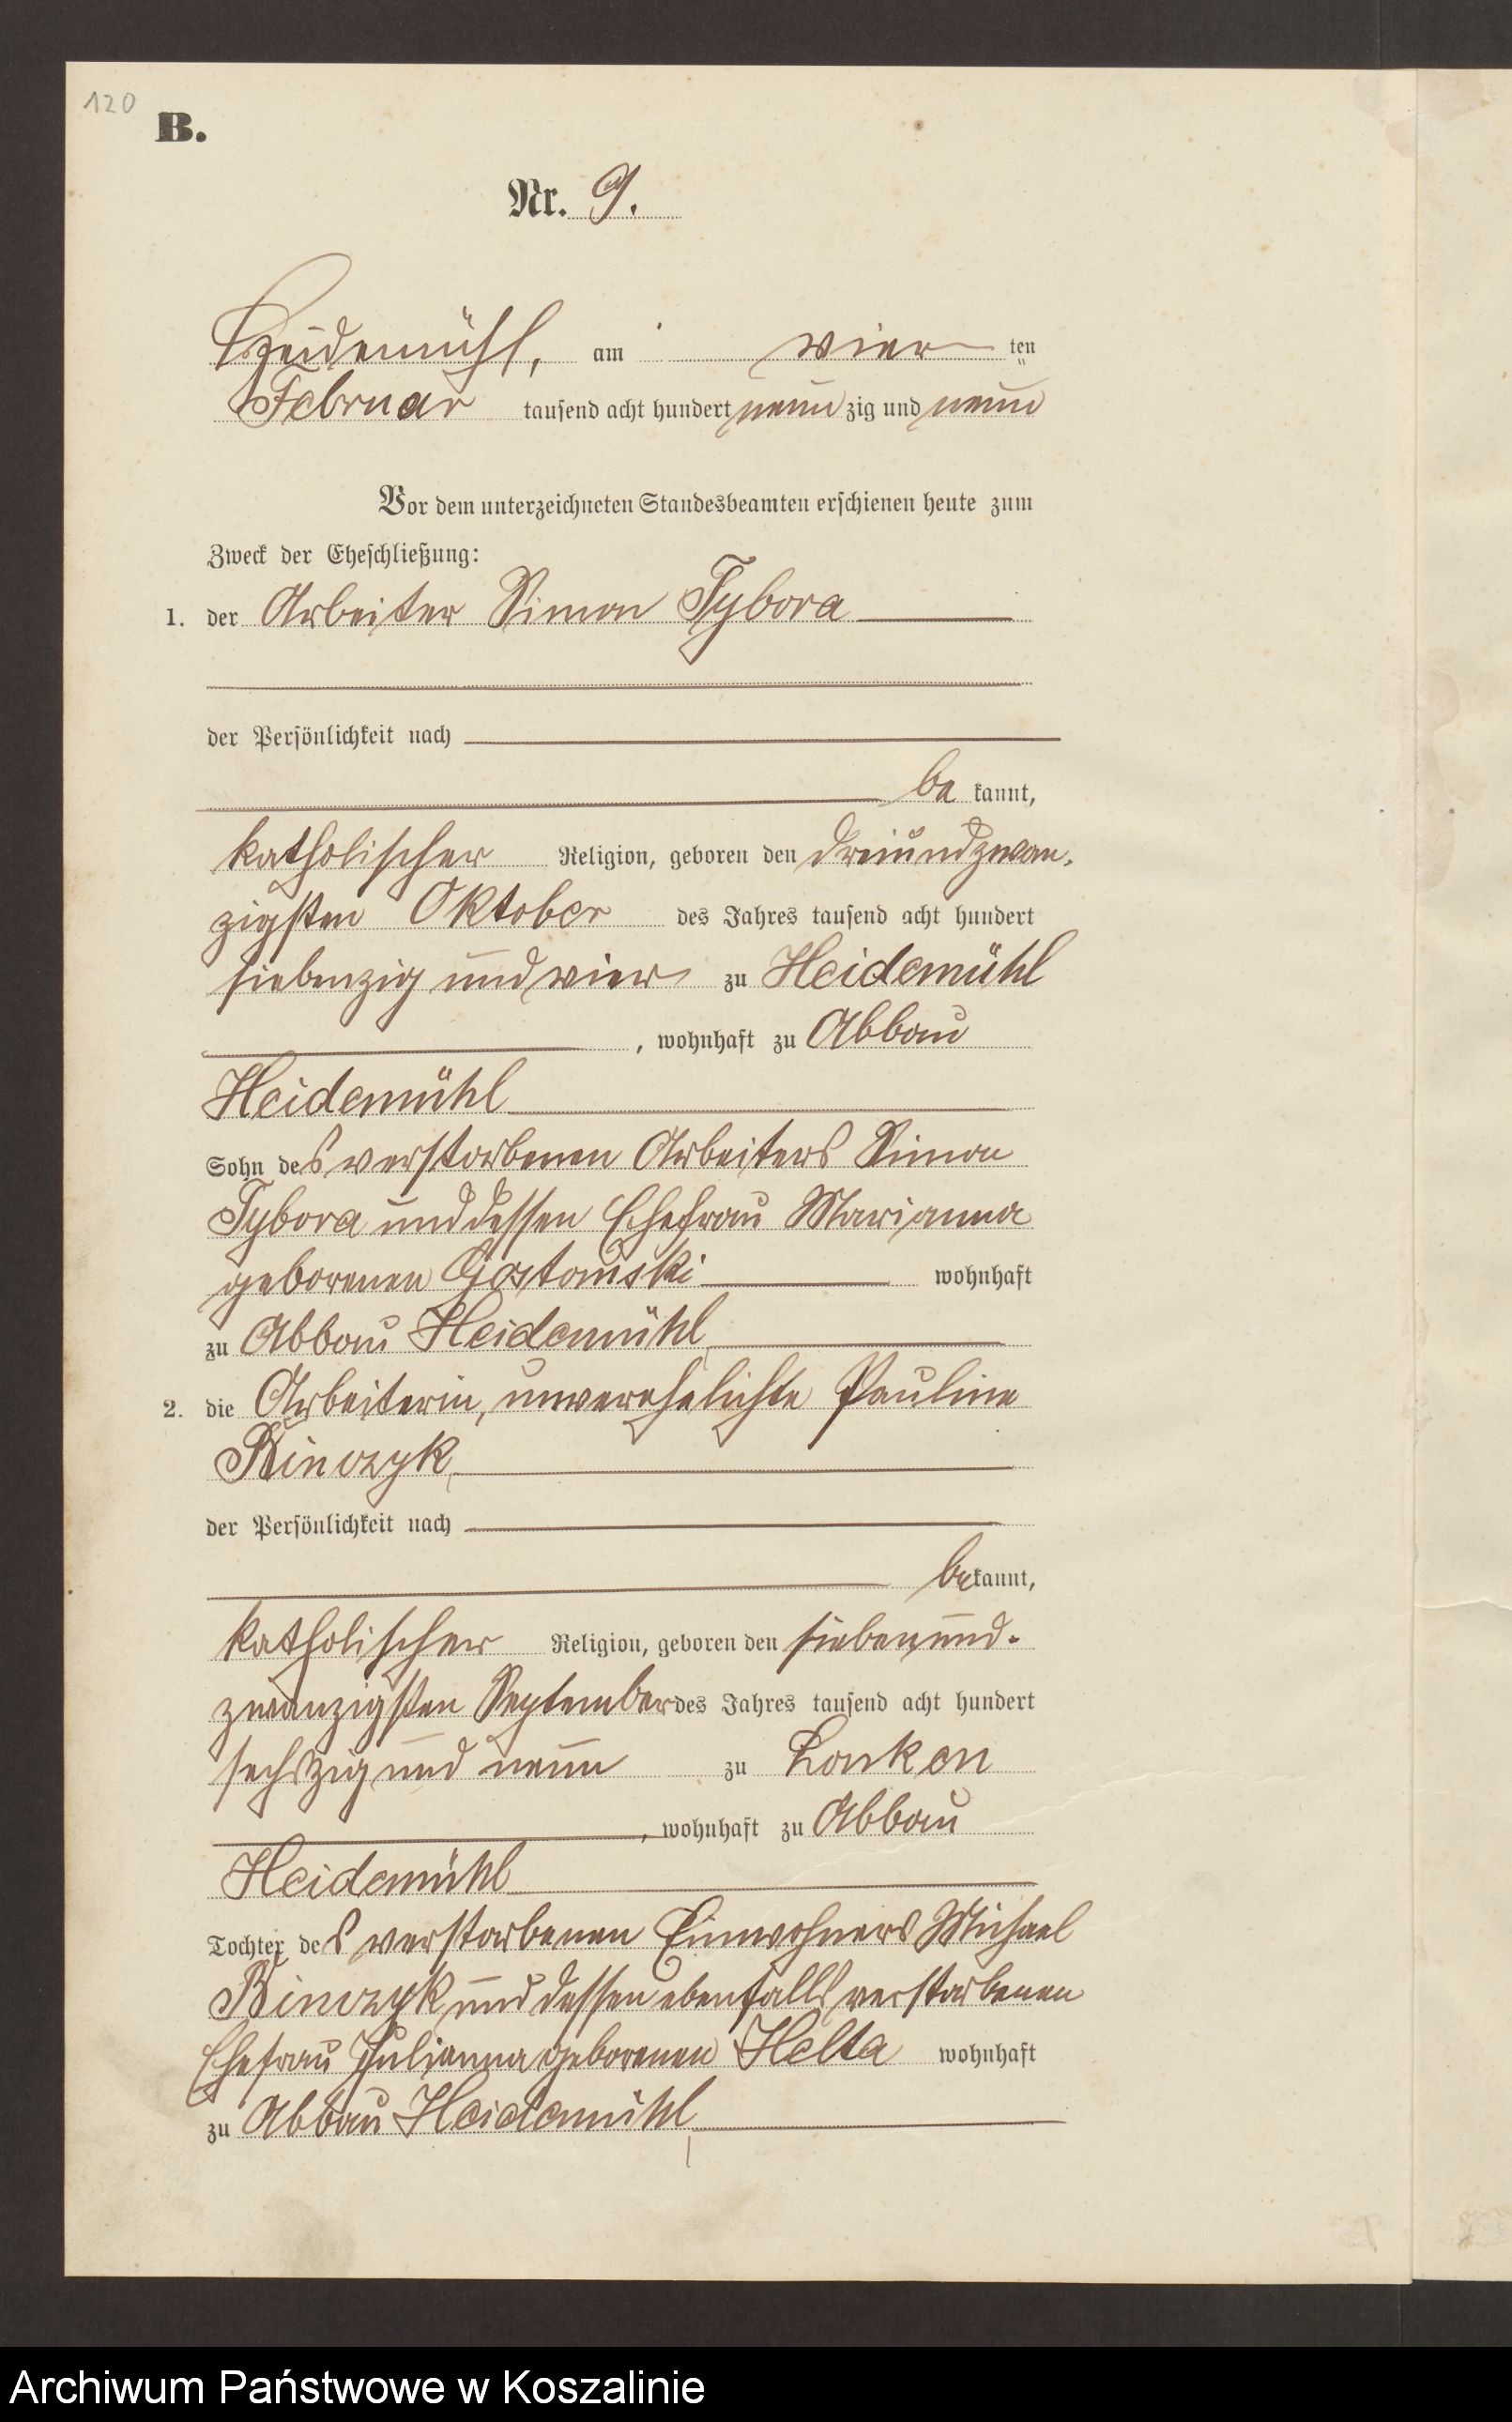 120
B.
Nr. 9.
Heidemühl, am vier ten
Februar tausend acht hundert neun zig und neun
Vor dem unterzeichneten Standesbeamten erschienen heute zum
Zweck der Eheschließung:
1. der Arbeiter Simon Tybora
der Persönlichkeit nach
be kannt,
katholischer Religion, geboren den dreiundzwan-
zigsten Oktober des Jahres tausend acht hundert
siebenzig und vier zu Heidemühl
, wohnhaft zu Abbau
Heidemühl
Sohn des verstorbenen Arbeiters Simon
Tybora und dessen Ehefrau Marianna
geborenen Gostomski wohnhaft
zu Abbau Heidemühl
2. die Arbeiterin, unverehelichte Pauline
Binczyk
der Persönlichkeit nach
bekannt,
katholischer Religion, geboren den siebenund-
zwanzigsten September des Jahres tausend acht hundert
sechszig und neun zu Lonken
, wohnhaft zu Abbau
Heidemühl
Tochter des verstorbenen Einwohners Michael
Binczyk und dessen ebenfalls verstorbenen
Ehefrau Julianna geborenen Helta wohnhaft
zu Abbau Heidemühl
Archiwum Państwowe w Koszalinie